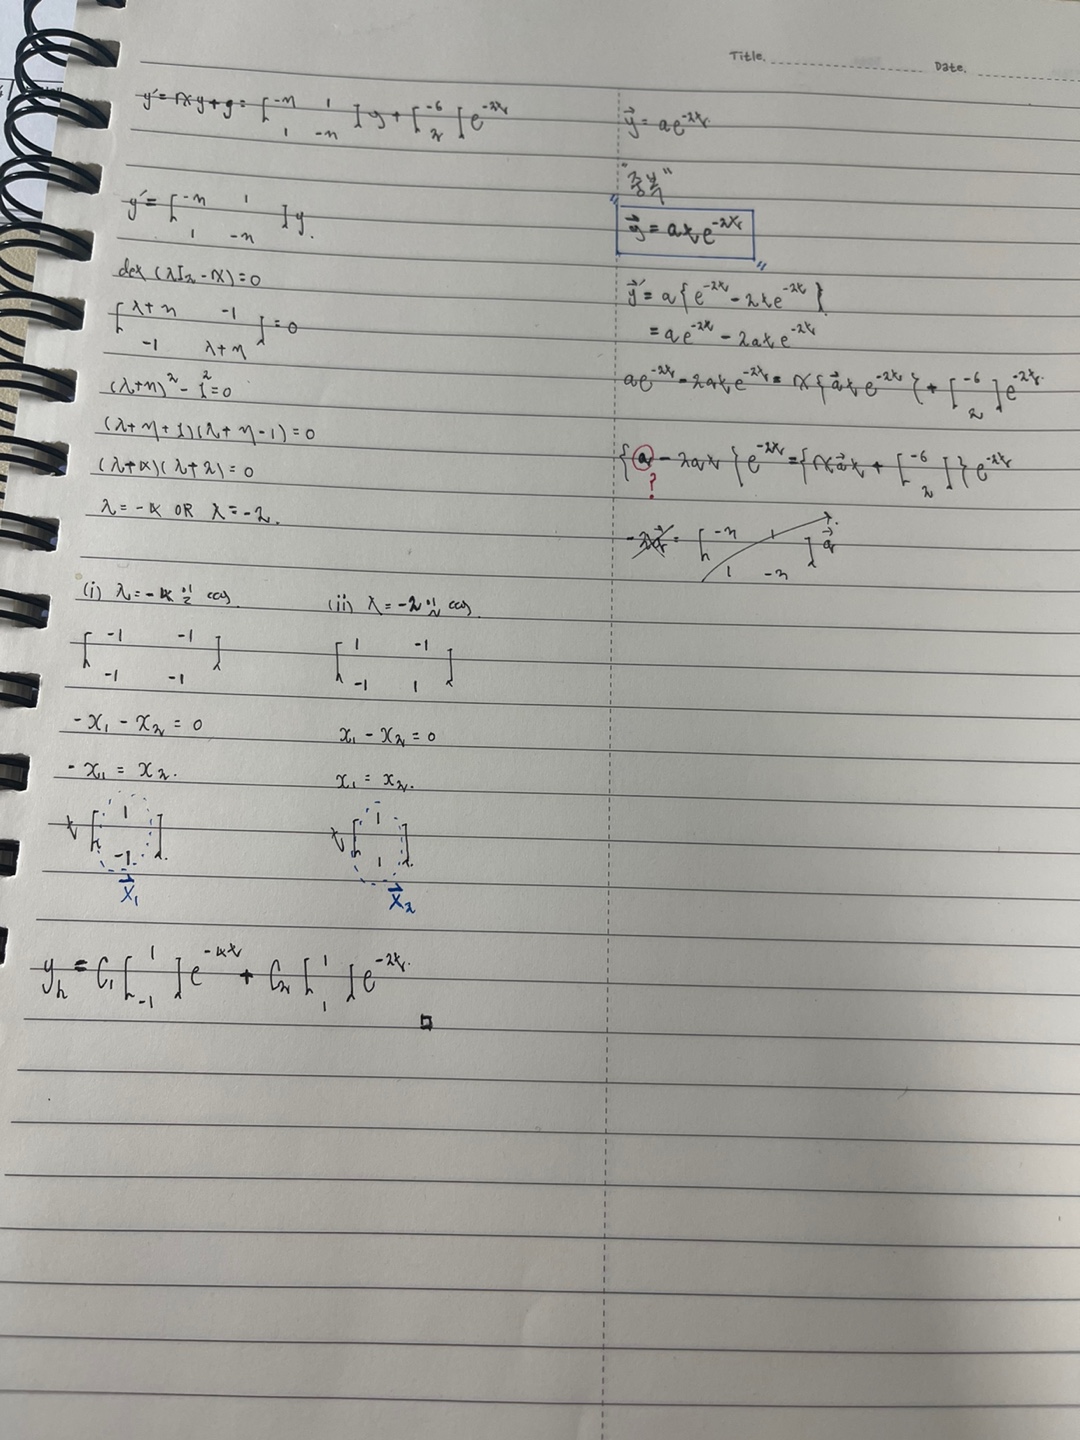 Title.
Date.
y' = Ay+g = [-3 1
1 -3] y + [-6
2] e^-2t
y' = [-3 1
1 -3] y.
det (λI₂ - A) = 0
[λ+3 -1
-1 λ+3] = 0
(λ+3)² - 1² = 0
(λ+3+1)(λ+3-1) = 0
(λ+4)(λ+2) = 0
λ = -4 OR λ = -2.
(i) λ = -4 일 때
[-1 -1
-1 -1]
-x₁ - x₂ = 0
-x₁ = x₂.
t [1
-1].
x⃗₁
(ii) λ = -2 일 때
[1 -1
-1 1]
x₁ - x₂ = 0
x₁ = x₂.
t [1
1].
x⃗₂
y_h = C₁ [1
-1] e^-4t + C₂ [1
1] e^-2t.
y⃗ = ae^-2t.
"중복"
"y⃗ = ate^-2t"
y⃗' = a{e^-2t - 2te^-2t}
= ae^-2t - 2ate^-2t
ae^-2t - 2ate^-2t = A{a⃗te^-2t} + [-6
2] e^-2t.
{a - 2at}e^-2t = {Aa⃗t + [-6
2]} e^-2t
?
-2a⃗ = [-3 1
1 -3] a⃗